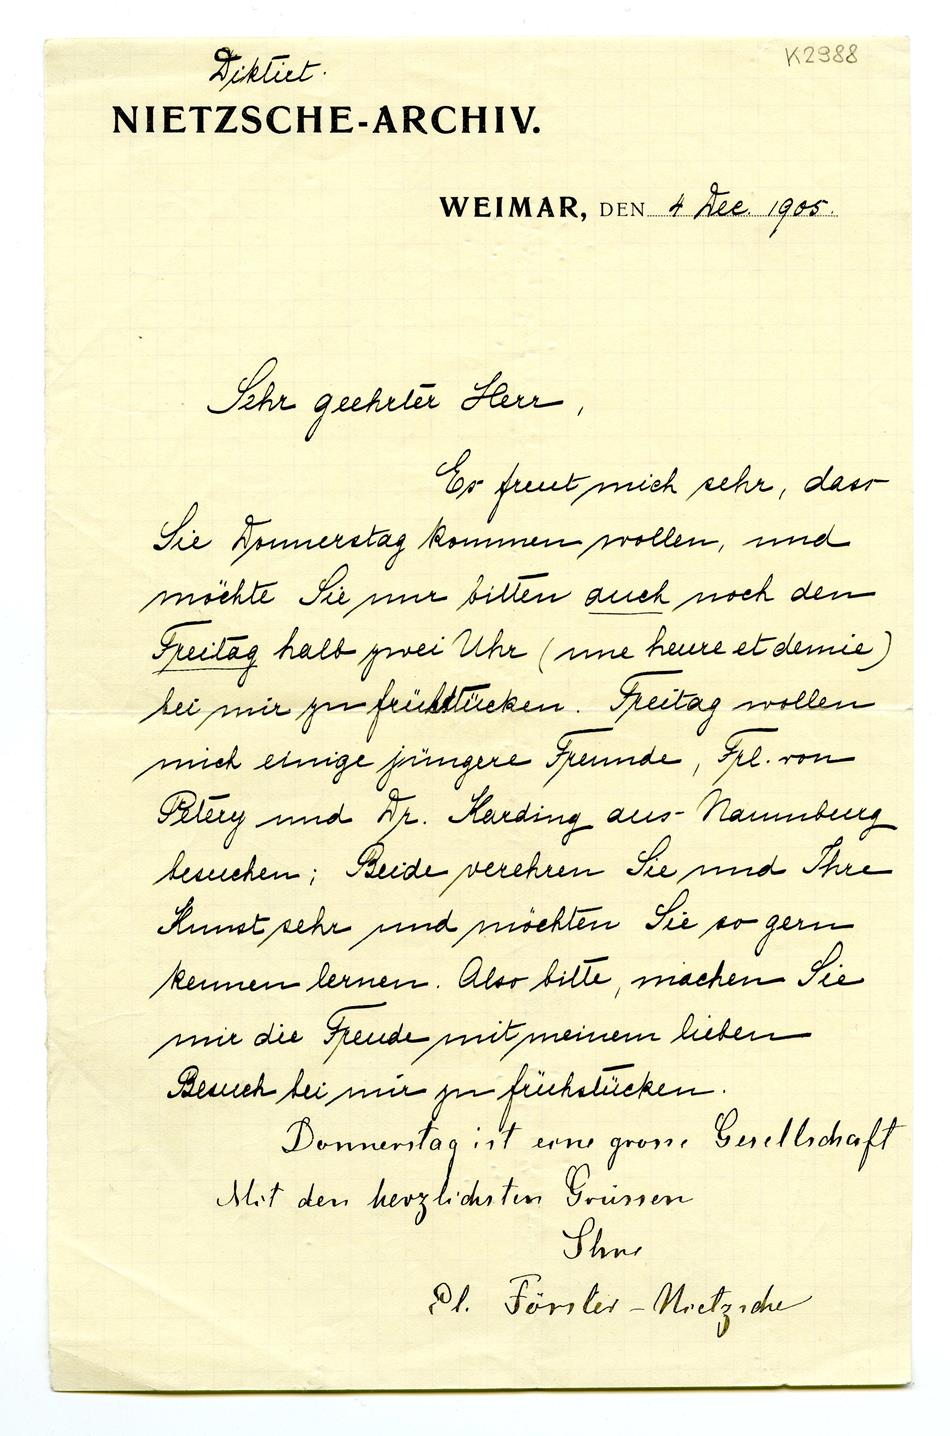 Diktirt.
K2988
NIETZSCHE-ARCHIV.
WEIMAR, DEN 4 Dec. 1905.
Sehr geehrter Herr,
Es freut mich sehr, dass
Sie Donnerstag kommen wollen, und
möchte Sie nur bitten auch noch den
Freitag halb zwei Uhr (une heure et demie)
bei mir zu frühstücken. Freitag wollen
mich einige jüngere Freunde, Frl. von
Petery und Dr. Harding aus Naumburg
besuchen; Beide verehren Sie und Ihre
Kunst sehr und möchten Sie so gern
kennen lernen. Also bitte, machen Sie
mir die Freude mit meinem lieben
Besuch bei mir zu frühstücken.
Donnerstag ist eine grosse Gesellschaft
Mit den herzlichsten Grüssen
Ihre
El. Förster-Nietzsche